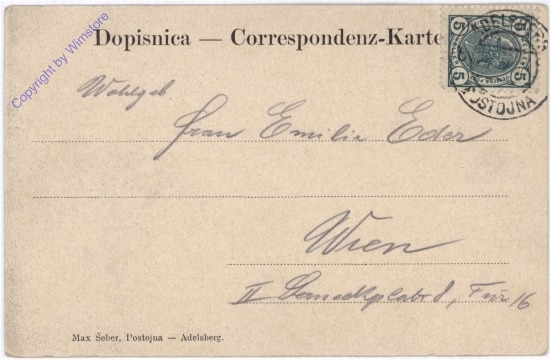 Copyright by Wimstore
Dopisnica — Correspondenz-Karte
5 5
5 5
ADELSBERG
POSTOJNA
Wohlgeb
Frau Emilie Eder
Wien
II 8, Tür 16
Max Šeber, Postojna — Adelsberg.